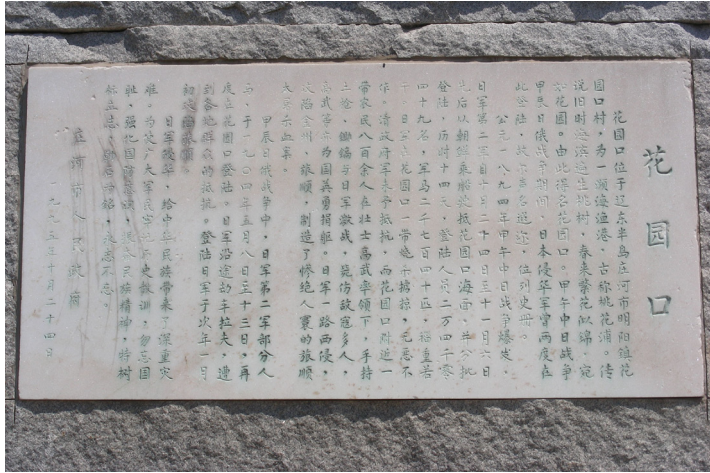 花园口
花园口位于辽东半岛庄河市明阳镇花
园口村，为一濒海渔港。古称桃花浦。传
说旧时近滨遍生桃树，春来繁花似锦，宛
如花园。由此得名花园口。甲午中日战争
甲辰日俄战争期间，日本侵华军曾两度在
此登陆，故而 名遐迩，位列史册。
公元一八九四年甲午中日战争爆发，
日军第二军自十月二十四日至十一月六日
先后从朝鲜乘船驶抵花园口海面，并分批
登陆，历时十四天，登陆人员二万四千零
四十九名，军马二千七百四十匹，辎重若
干。日军在花园口一带烧杀掳掠，无恶不
作。清政府军未予抵抗，而花园口附近一
带农民八百余人在壮士高武率领下，手持
土枪、锄镐与日军激战，毙伤敌寇多人，
高武等亦为国英勇捐躯。日军一路西侵，
攻陷金州、旅顺，制造了惨绝人寰的旅顺
大屠杀血案。
甲辰日俄战争中，日军第二军部分人
马，于一九〇四年五月八日至十三日，再
度在花园口登陆。日军沿途劫车拉夫，遭
到各地群众的抵抗。登陆日军于次年一月
初攻陷旅顺。
日军侵华，给中华民族带来了深重灾
难。为使广大军民牢记历史教训，勿忘国
耻，强化国防意识，振奋民族精神，特树
碑立志，昭启后裔，永志不忘。
庄河市人民政府
一九九五年十月二十四日